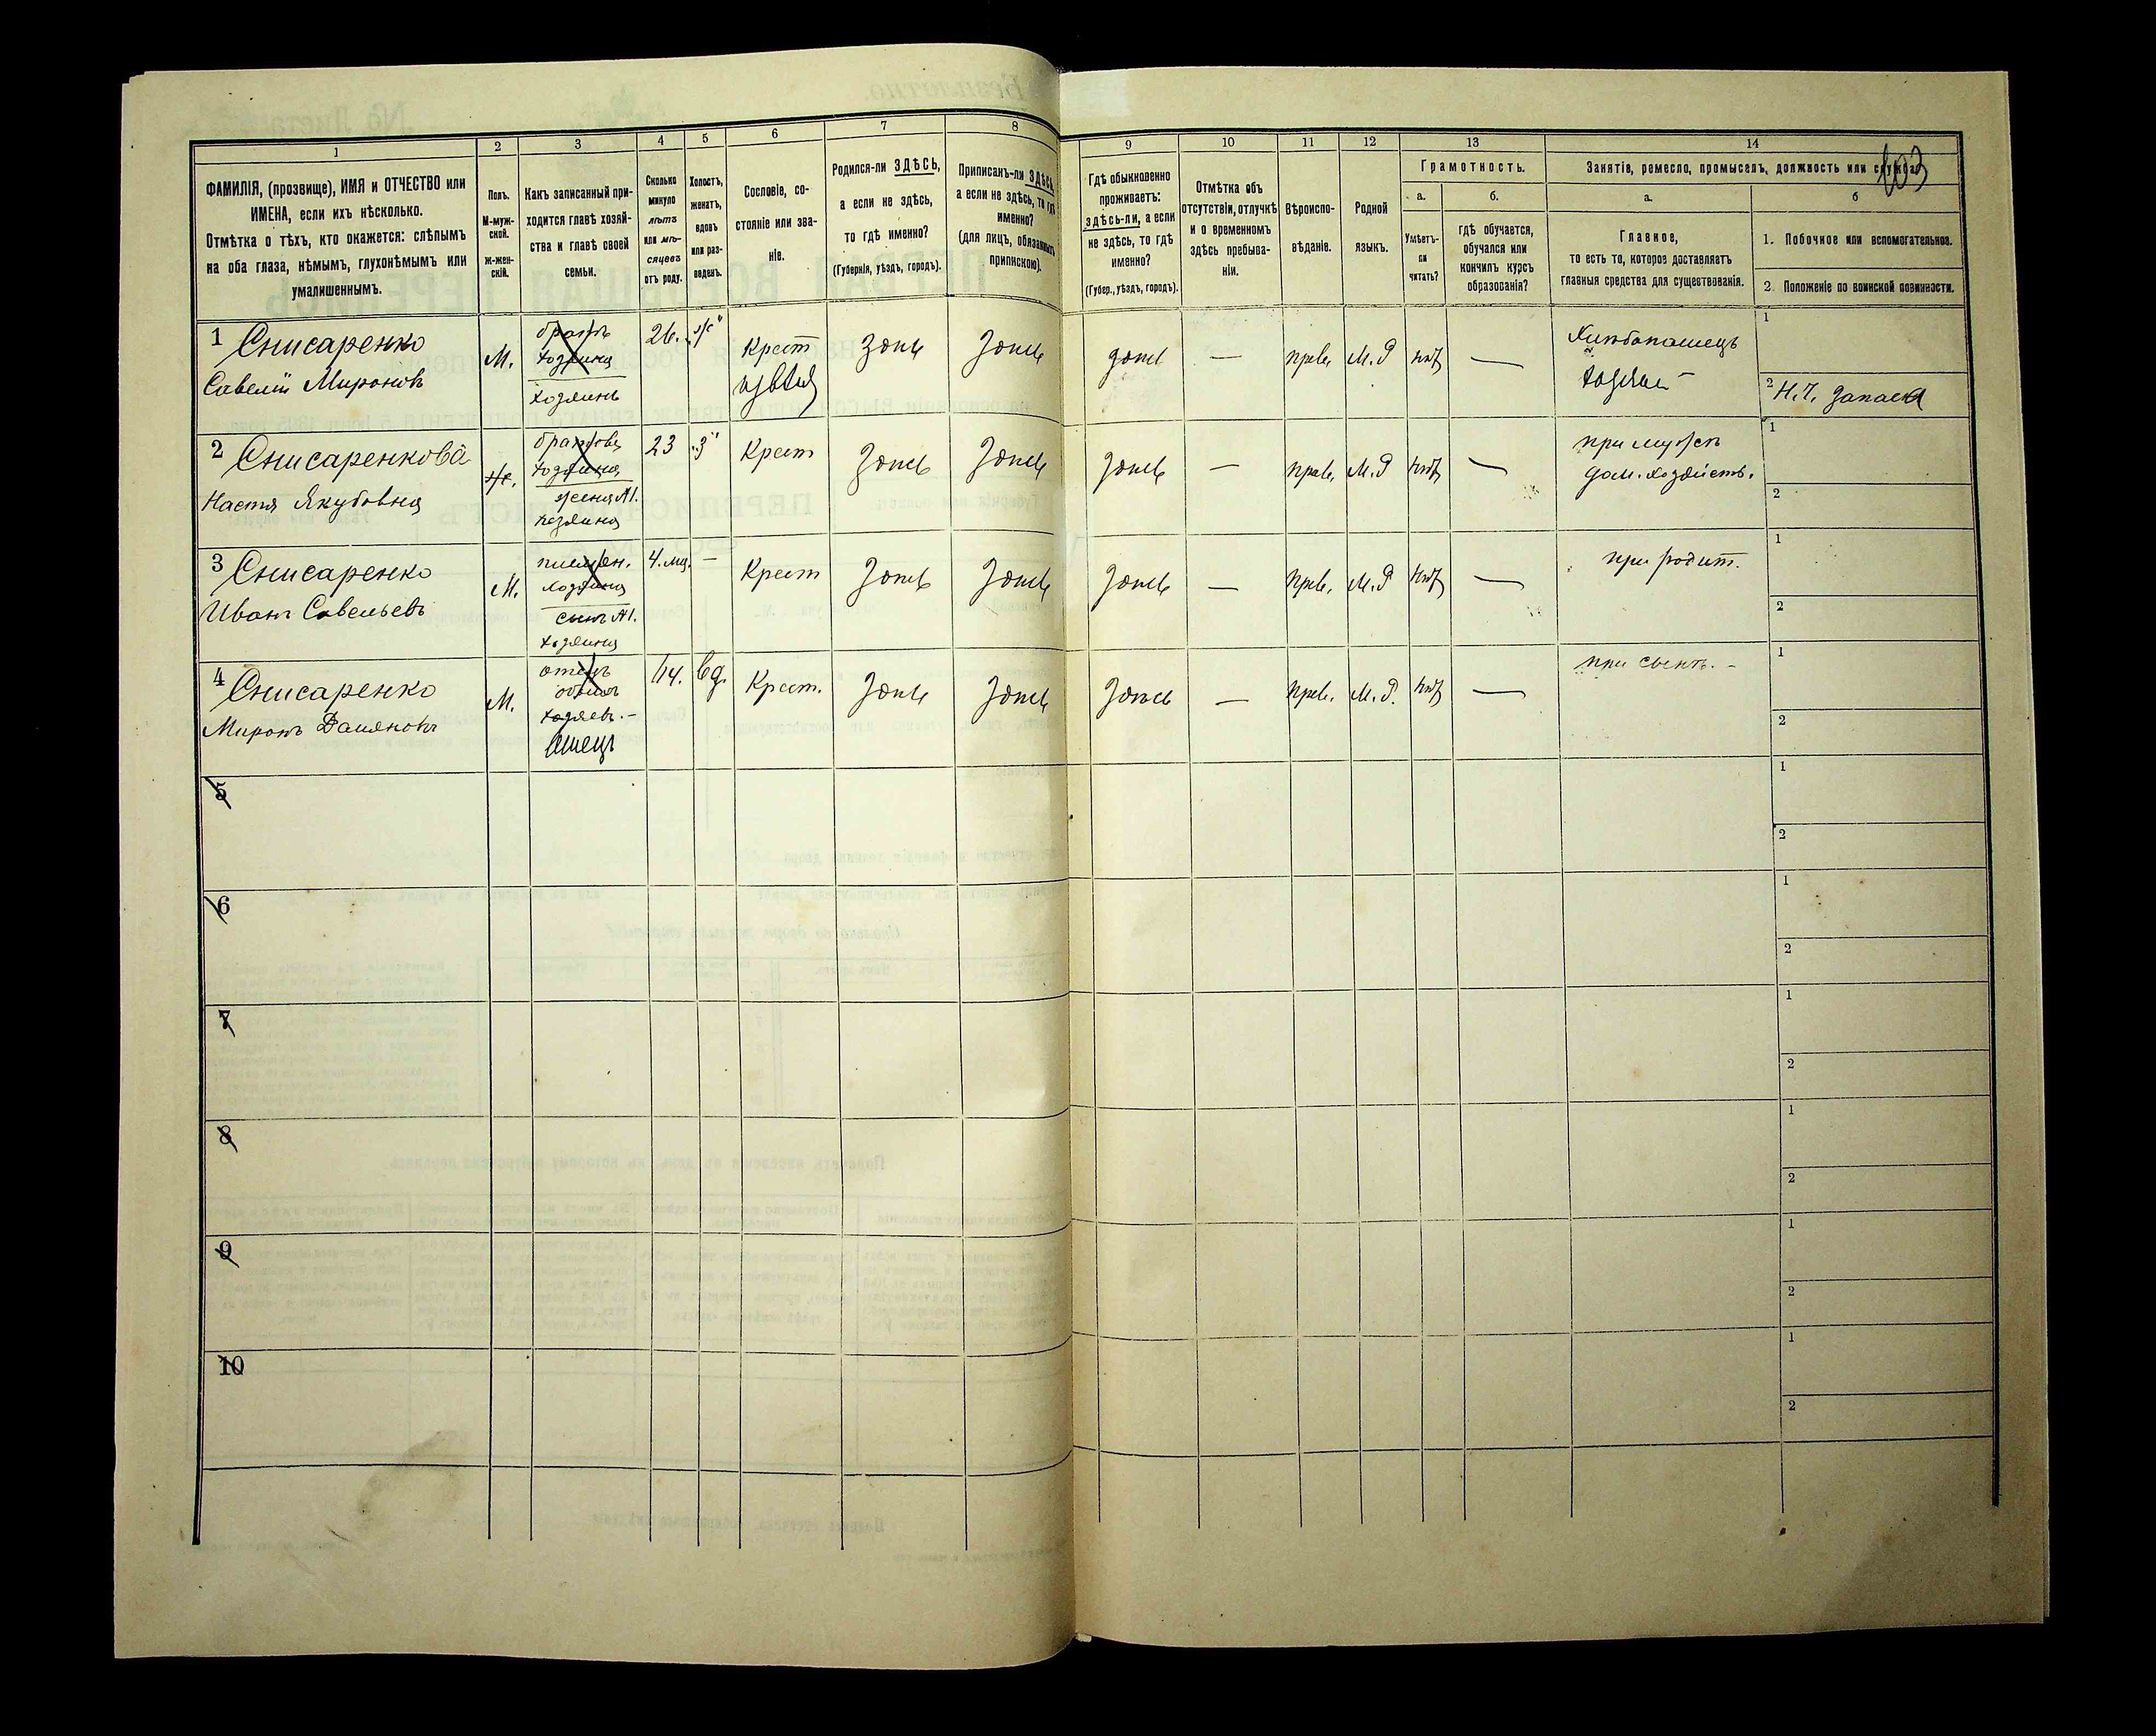 103
1
2
3
4
5
6
7
8
9
10
11
12
13
14
ФАМИЛІЯ, (прозвище), ИМЯ и ОТЧЕСТВО или
ИМЕНА, если ихъ нѣсколько.
Отмѣтка о тѣхъ, кто окажется: слѣпымъ
на оба глаза, нѣмымъ, глухонѣмымъ или
умалишеннымъ.
Полъ.
М-муж-
ской.
ж-жен-
скій.
Какъ записанный при-
ходится главѣ хозяй-
ства и главѣ своей
семьи.
Сколько
минуло
лѣтъ
или мѣ-
сяцевъ
отъ роду.
Холостъ,
женатъ,
вдовъ
или раз-
веденъ.
Сословіе, со-
стояніе или зва-
ніе.
Родился-ли ЗДѢСЬ,
а если не здѣсь,
то гдѣ именно?
(Губернія, уѣздъ, городъ).
Приписанъ-ли ЗДѢСЬ,
а если не здѣсь, то гдѣ
именно?
(для лицъ, обязанныхъ
припискою).
Гдѣ обыкновенно
проживаетъ:
здѣсь-ли, а если
не здѣсь, то гдѣ
именно?
(Губер., уѣздъ, городъ).
Отмѣтка объ
отсутствіи, отлучкѣ
и о временномъ
здѣсь пребыва-
ніи.
Вѣроиспо-
вѣданіе.
Родной
языкъ.
Грамотность.
а.
Умѣетъ-
ли
читать?
б.
гдѣ обучается,
обучался или
кончилъ курсъ
образованія?
Занятія, ремесло, промыселъ, должность или служба.
а.
Главное,
то есть то, которое доставляетъ
главныя средства для существованія.
б
1. Побочное или вспомогательное.
2. Положеніе по воинской повинности.
1 Снисаренко
Савелій Мироновъ
М.
братъ
хозяина
хозяинъ
26.
Крест
здѣсь
здѣсь
здѣсь
—
прав.
М. Р
нѣт
—
Хлѣбопашецъ
хозяин –
1
2 Н. Ч. запаса
2 Снисаренкова
Настя Якубовна
ж.
хозяина
жена №1.
хозяина
23
"З"
Крест
здѣсь
здѣсь
здѣсь
—
прав.
М. Р
нѣт
—
при мужѣ
дом. хозяйств.
1
2
3 Снисаренко
Иванъ Савельевъ
М.
племян.
хозяина
сынъ №1.
хозяина
4. мц.
—
Крест
здѣсь
здѣсь
здѣсь
—
прав.
М. Р
нѣт
—
при родит.
1
2
4 Снисаренко
Миронъ Дамяновъ
М.
отецъ
хозяев. –
отецъ
вд.
Крест.
здѣсь
здѣсь
здѣсь
—
прав.
М. Р.
нѣт
—
при сынѣ. –
1
2
5
1
2
6
1
2
7
1
2
8
1
2
9
1
2
10
1
2